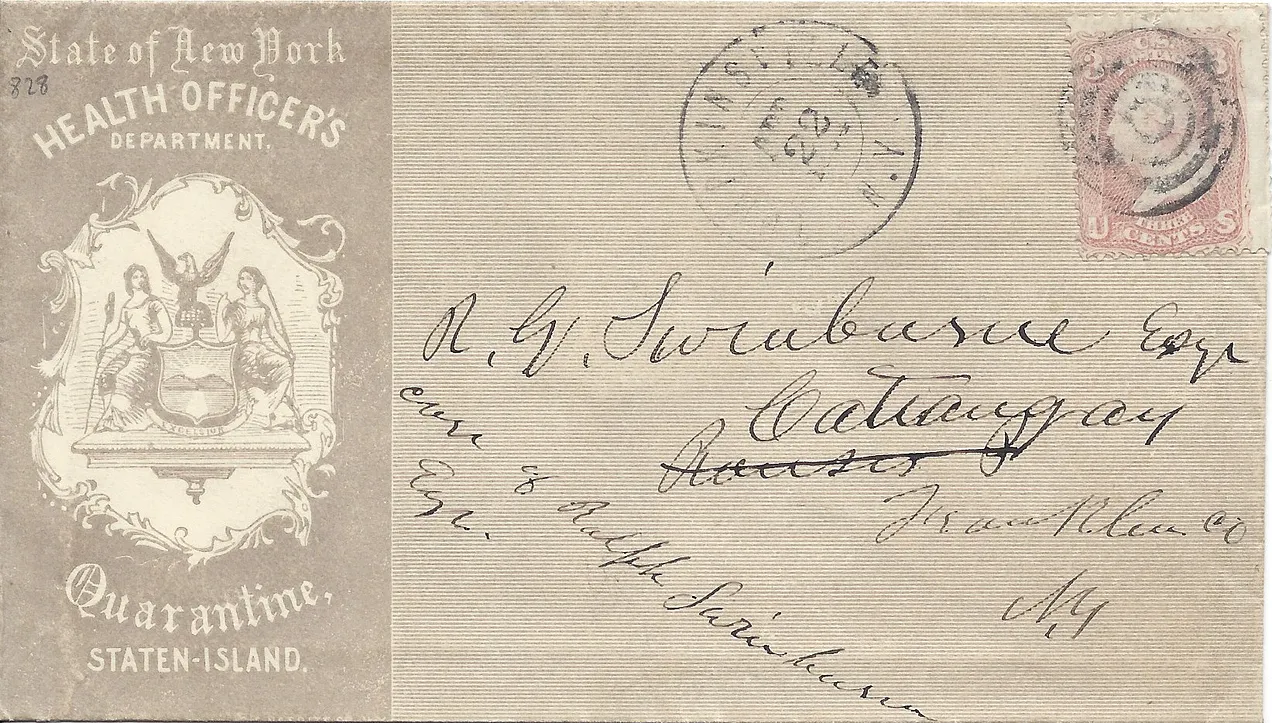 State of New York
828
HEALTH OFFICER'S
DEPARTMENT.
EXCELSIOR
Quarantine,
STATEN-ISLAND.
KINSVILLE N.Y.
FEB
22
3 U.S. 3
U THREE S
CENTS
R. W. Swinburne Esqr
Catiangay
Franklin Co
N.Y
care of Ralph Swinburne
Esqr.